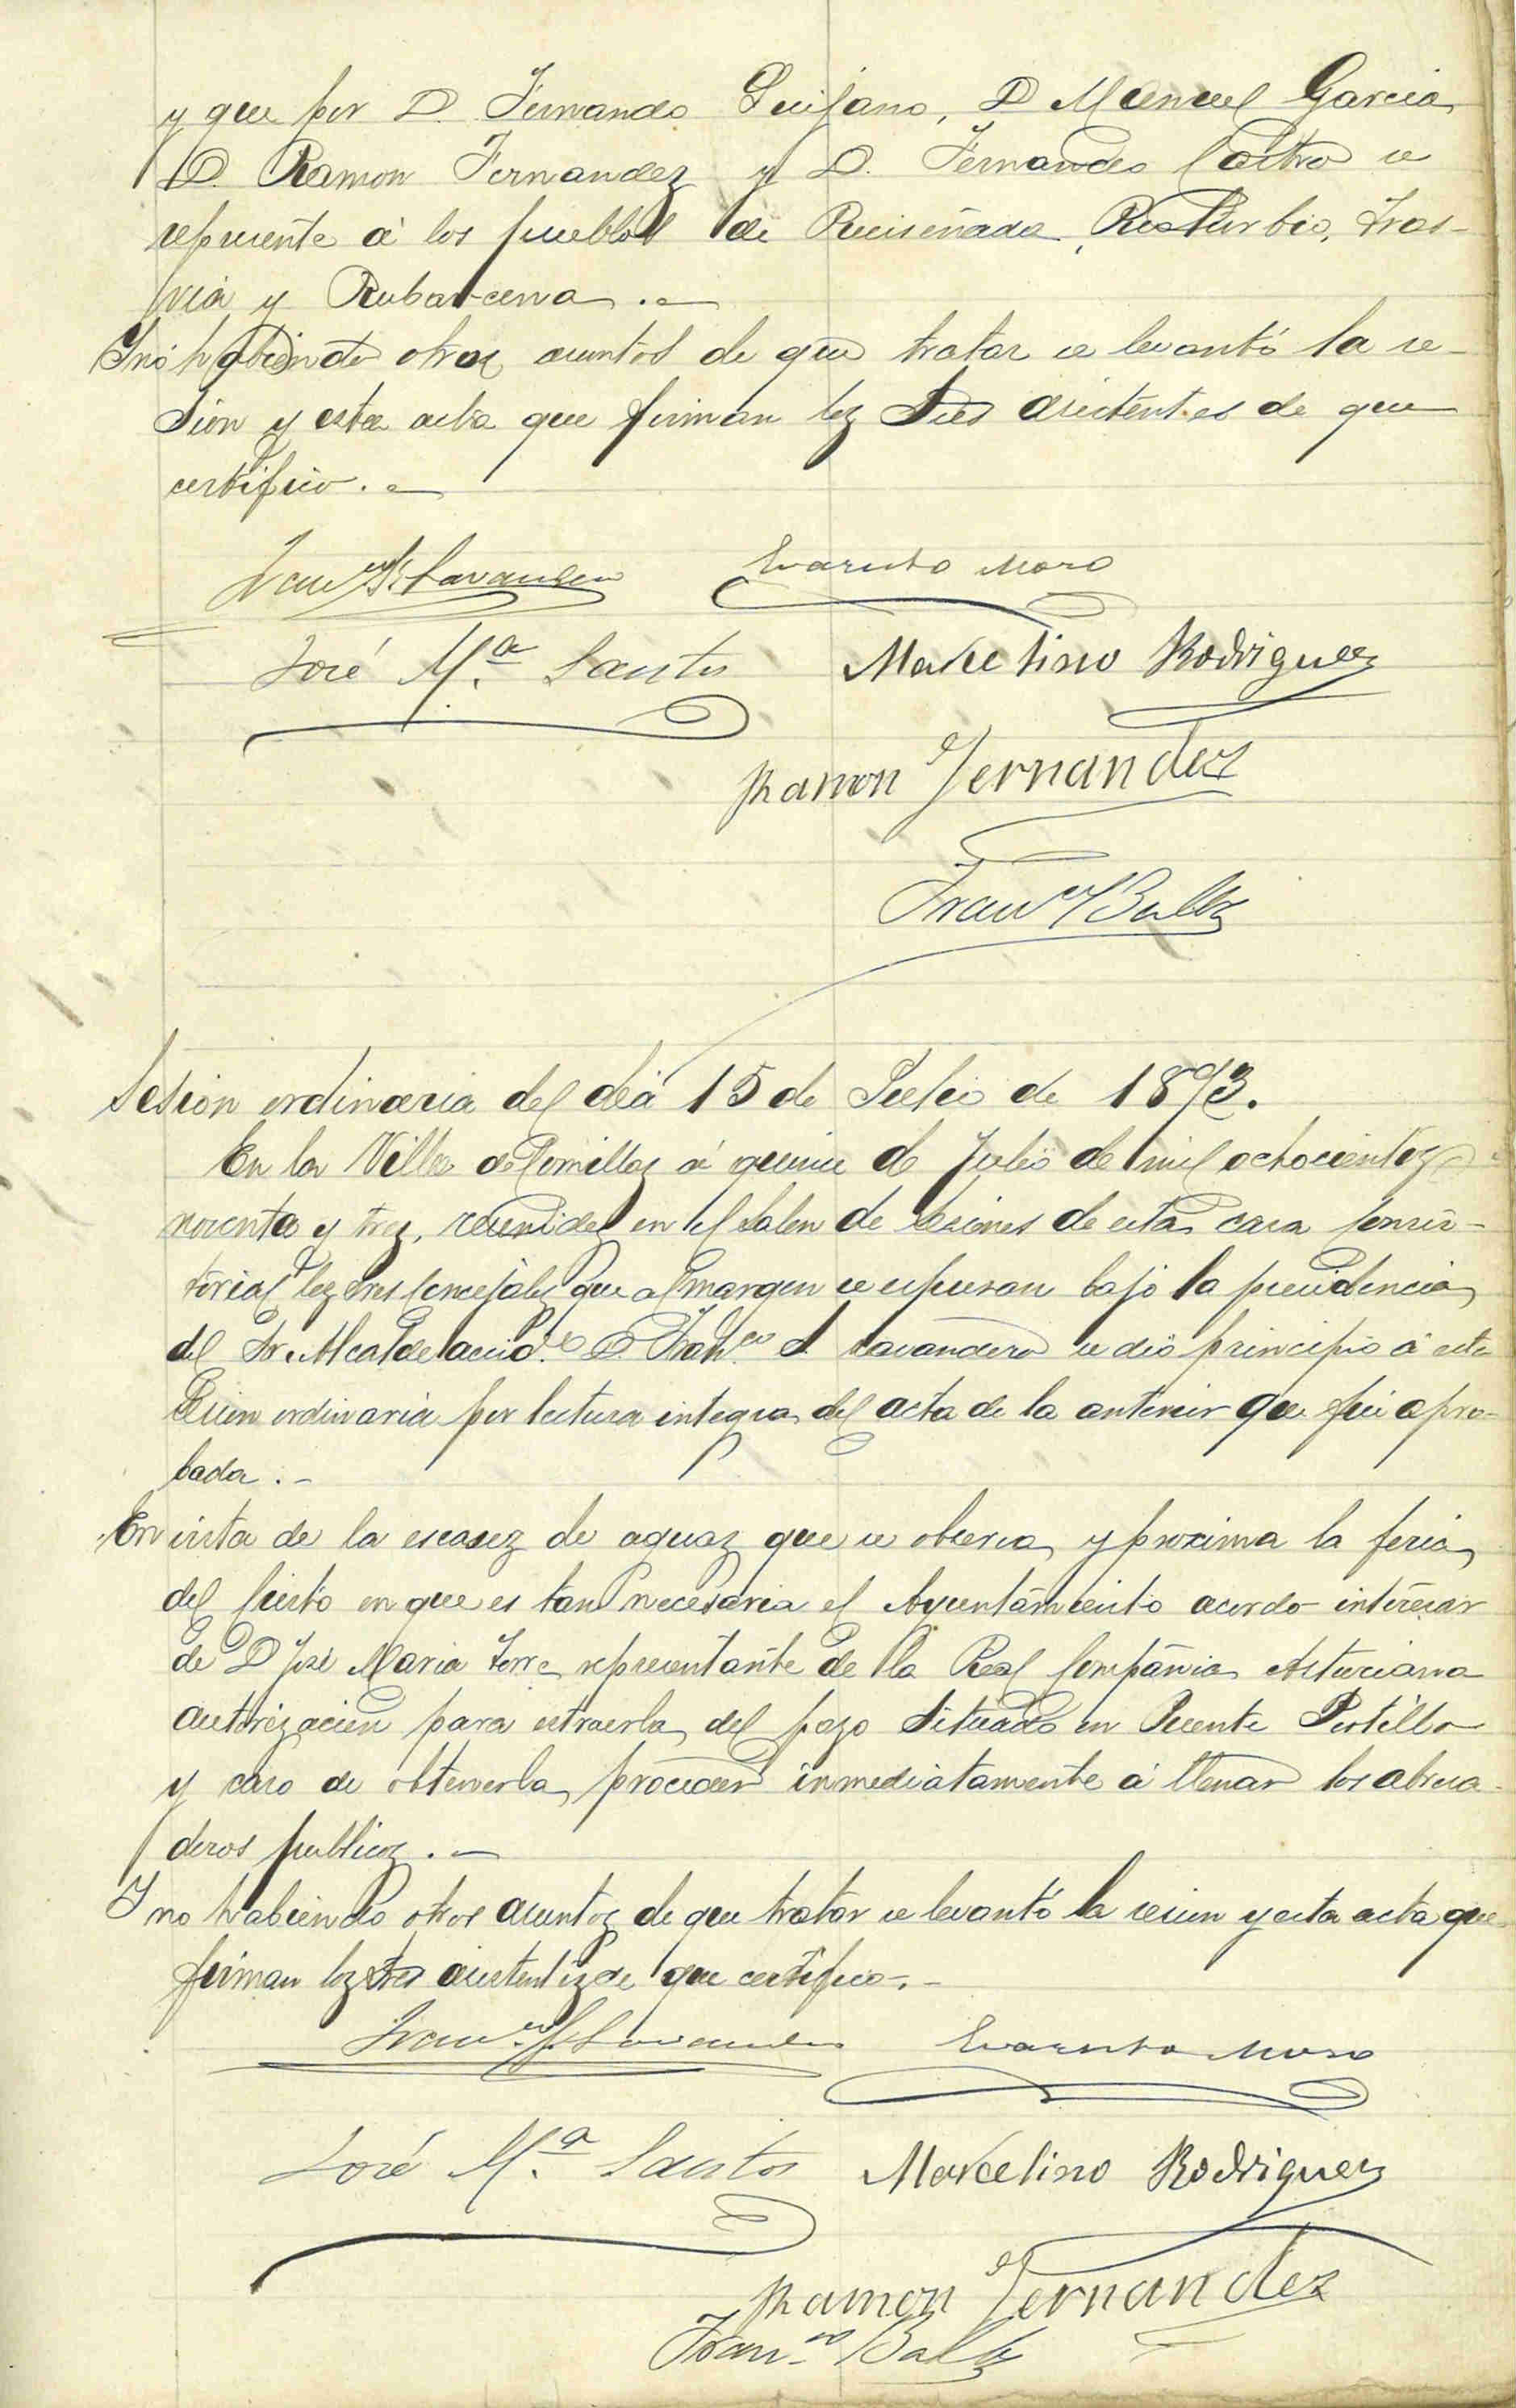 y que por D. Fernando Quijano, D Manuel Garcia
D. Ramon Fernandez y D. Fernando Castro se
represente á los pueblos de Ruiseñada, Rioturbio, Tras-
via y Rubarcena.
Y no habiendo otros asuntos de que tratar se levantó la se-
sion y esta acta que firman los Sres asistentes de que
certifico.
Fran.co S. Lavandero
Evaristo Moro
José M.a Santos
Marcelino Rodriguez
Ramon Fernandez
Fran.co
Sesion ordinaria del dia 15 de Julio de 1893.
En la Villa de Comillas á quince de Julio de mil ochocientos
noventa y tres, reunidos en el Salon de sesiones de esta casa consis-
torial los Sres Concejales que al margen se espresan bajo la presidencia
del Sr. Alcalde D. Fran.co S. Lavandero se dió principio á esta
Sesion ordinaria por lectura integra del acta de la anterior que fué apro-
bada.
En vista de la escasez de aguas que se observa y proxima la feria
del Cristo en que es tan necesaria el Ayuntamiento acordo interesar
de D José Maria Torre representante de la Real Compañia Asturiana
autorizacion para estraerla del pozo Situado en Puente Portillo
y caso de obtenerla, proceder inmediatamente á llenar los abreva-
deros publicos.
Y no habiendo otros asuntos de que tratar se levantó la sesion y esta acta que
firman los Sres asistentes de que certifico.
Fran.co S. Lavandero
Evaristo Moro
José M.a Santos
Marcelino Rodriguez
Ramon Fernandez
Fran.co